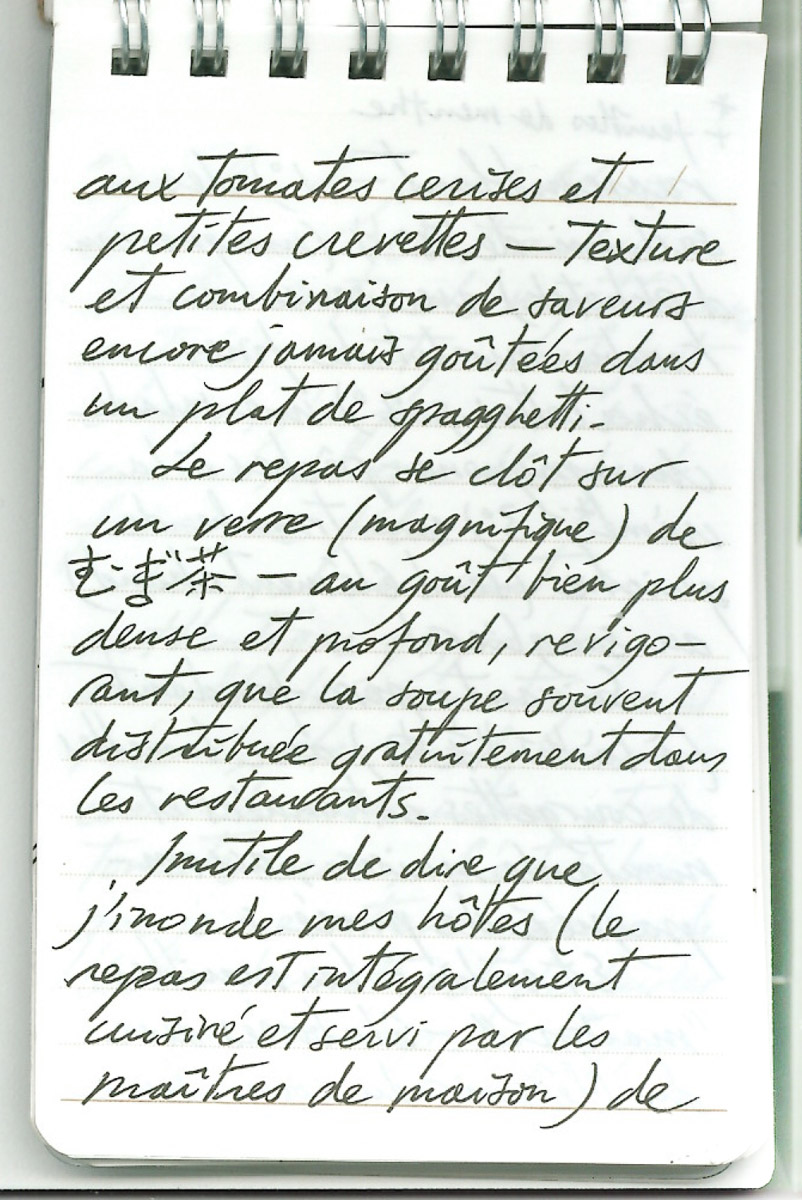 aux tomates cerises et
petites crevettes – Texture
et combinaison de saveurs
encore jamais goûtées dans
un plat de spagghetti.
Le repas se clôt sur
un verre (magnifique) de
むぎ茶 – au goût bien plus
dense et profond, revigo-
rant, que la soupe souvent
distribuée gratuitement dans
les restaurants.
Inutile de dire que
j'inonde mes hôtes (le
repas est intégralement
cuisiné et servi par les
maîtres de maison) de